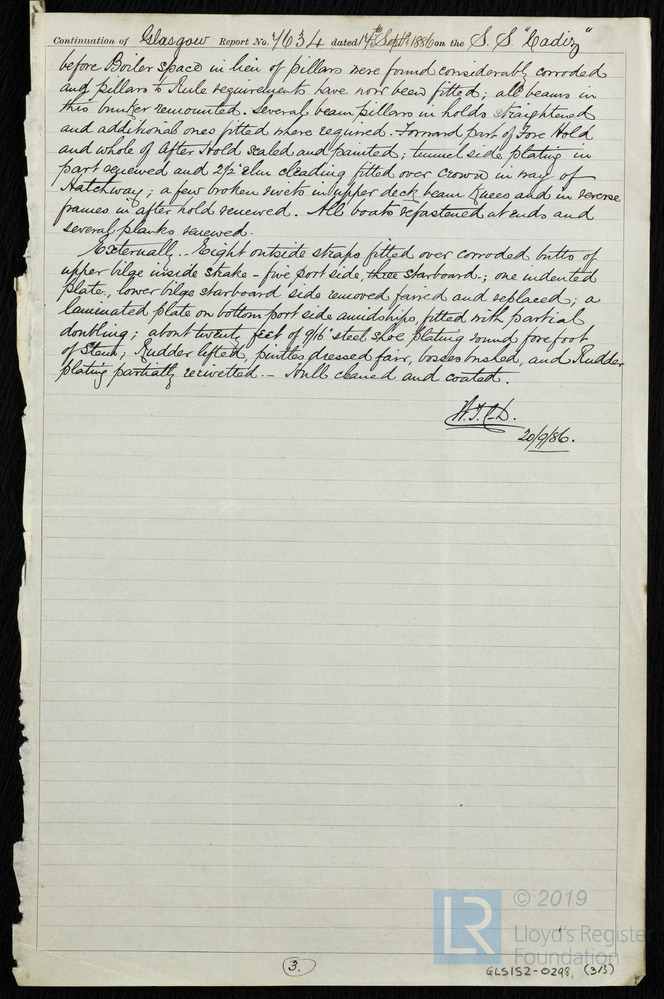 Continuation of Glasgow Report No. 7634 dated 14th Septr 1886 on the S.S "Cadiz"
before Boiler space in lieu of pillars were found considerably corroded
and pillars to Rule requirements have now been fitted; all beams in
this bunker remounted. Several beam pillars in holds straightened
and additional ones fitted where required. Forward part of Fore Hold
and whole of After Hold scaled and painted; tunnel side plating in
part renewed and 2½" elm cleading fitted over crown in way of
Hatchway; a few broken rivets in upper deck beam Knees and in reverse
frames in after hold renewed. All boats refastened at ends and
several planks renewed.
Externally. - Eight outside straps fitted over corroded butts of
upper bilge inside strake - five port side, three starboard; one indented
plate, lower bilge starboard side removed faired and replaced; a
laminated plate on bottom port side amidships, fitted with partial
doubling; about twenty feet of 9/16" steel shoe plating round forefoot
of Stem; Rudder lifted, pintles dressed fair, bosses bushed, and Rudder
plating partially rerivetted. - Hull cleaned and coated.
20/9/86.
3.
© 2019
LR
Lloyd's Register
Foundation
GLS152-0298 (3/3)